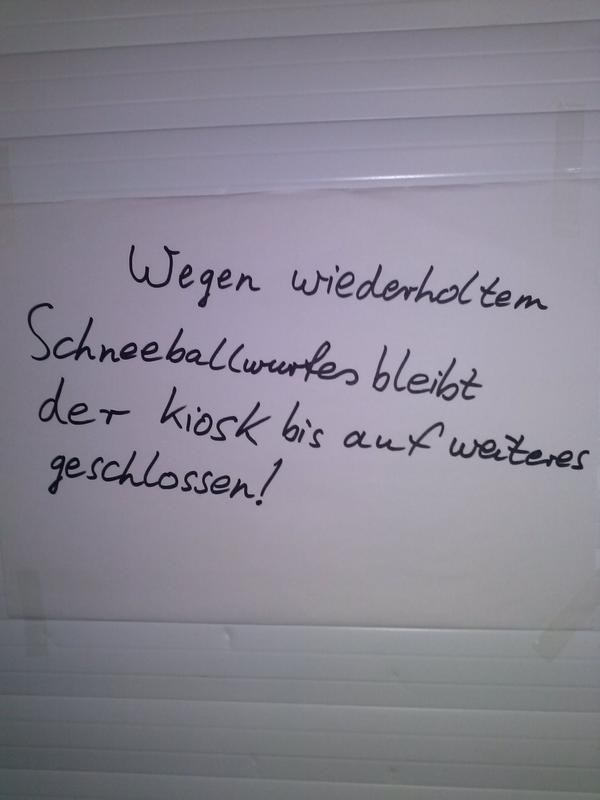 Wegen wiederholtem
Schneeballwurfes bleibt
der kiosk bis auf weiteres
geschlossen!